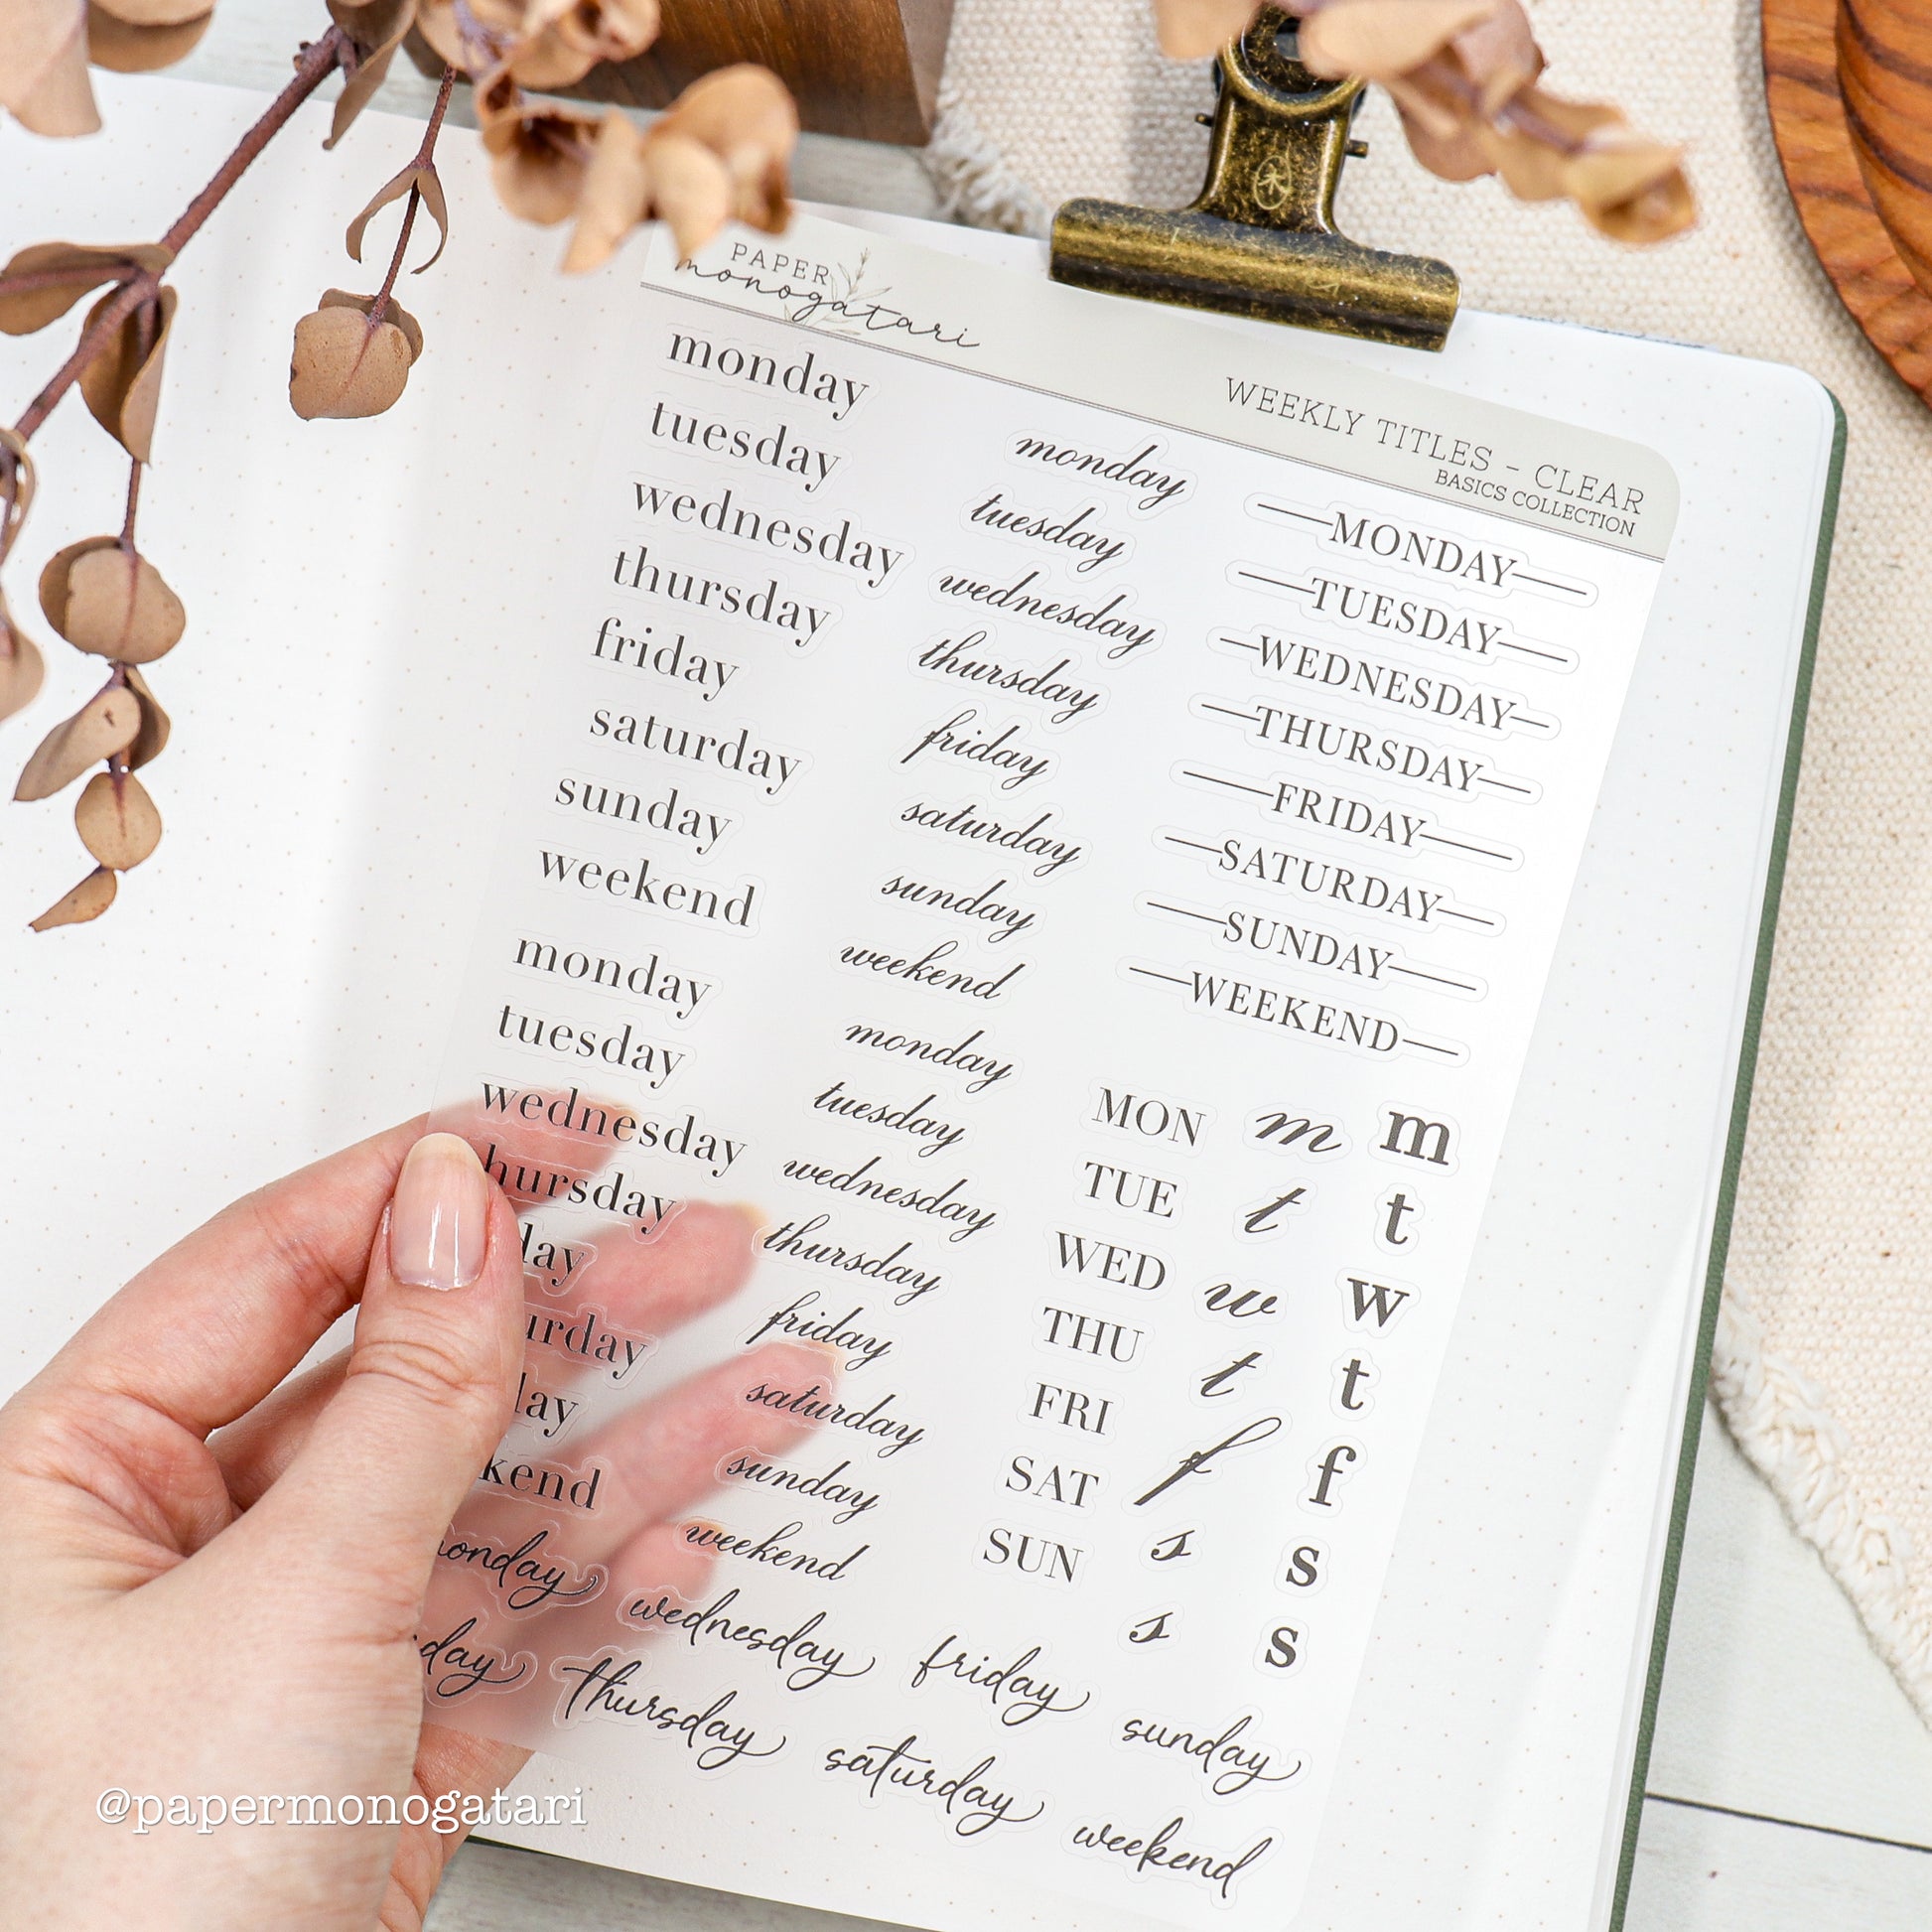 PAPER
monogatari
WEEKLY TITLES - CLEAR
BASICS COLLECTION
monday
tuesday
wednesday
thursday
friday
saturday
sunday
weekend
monday
tuesday
wednesday
hursday
day
urday
day
kend
monday
tuesday
wednesday
thursday
friday
saturday
sunday
weekend
monday
tuesday
wednesday
thursday
friday
saturday
sunday
weekend
MONDAY
TUESDAY
WEDNESDAY
THURSDAY
FRIDAY
SATURDAY
SUNDAY
WEEKEND
MON m m
TUE t t
WED w w
THU t t
FRI f f
SAT s s
SUN s s
onday wednesday friday sunday
day thursday saturday weekend
@papermonogatari